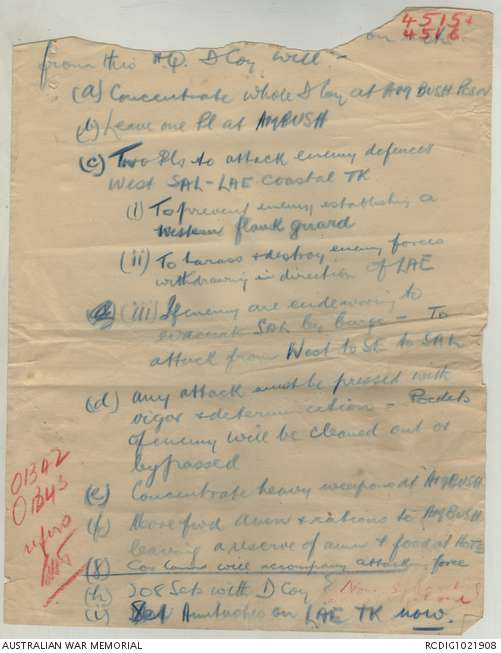 4515 &
4516
from this HQ. D Coy will -
(a) Concentrate whole D Coy at AMBUSH POSN
(b) Leave one Pl at AMBUSH
(c) Two Pls to attack enemy defences
West SAL-LAE coastal TK
(i) To prevent enemy establishing a
western flank guard
(ii) To harass & destroy enemy forces
withdrawing in direction of LAE
(iii) If enemy are endeavouring to
evacuate SAL by barge - To
attack from West to SE to SAL
(d) any attack must be pressed with
vigor & determination - Pockets
of enemy will be cleaned out or
bypassed
(e) Concentrate heavy weapons at AMBUSH
(f) Move fwd amn & rations to AMBUSH
leaving a reserve of amn & food at
(g) Coy Comd will accompany attacking force
(h) 208 Sets with D Coy
(i) Set Ambushes on LAE TK now.
01342
01343
refers
AUSTRALIAN WAR MEMORIAL
RCDIG1021908